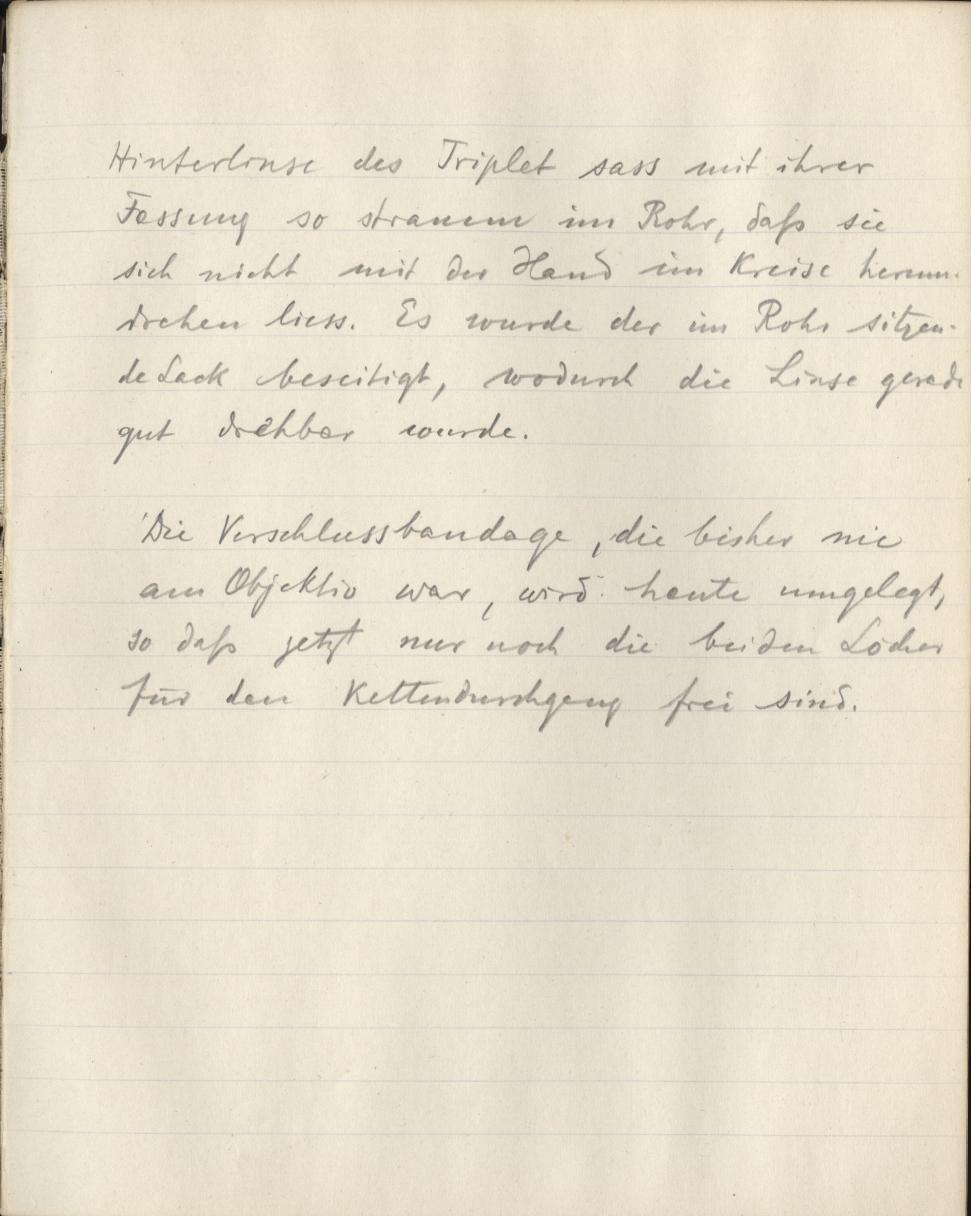 Hinterlinse des Triplet sass mit ihrer
Fassung so stramm im Rohr, daß sie
sich nicht mit der Hand im Kreise herum-
drehen liess. Es wurde der im Rohr sitzen-
de Lack beseitigt, wodurch die Linse gerade
gut drehbar wurde.
Die Verschlussbandage, die bisher nie
am Objektiv war, wird heute umgelegt,
so daß jetzt nur noch die beiden Löcher
für den Kettendurchgang frei sind.